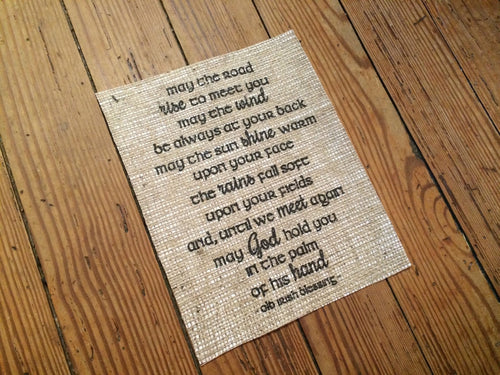 may the road
rise to meet you
may the wind
be always at your back
may the sun shine warm
upon your face
the rains fall soft
upon your fields
and, until we meet again
may God hold you
in the palm
of his hand
- old irish blessing -